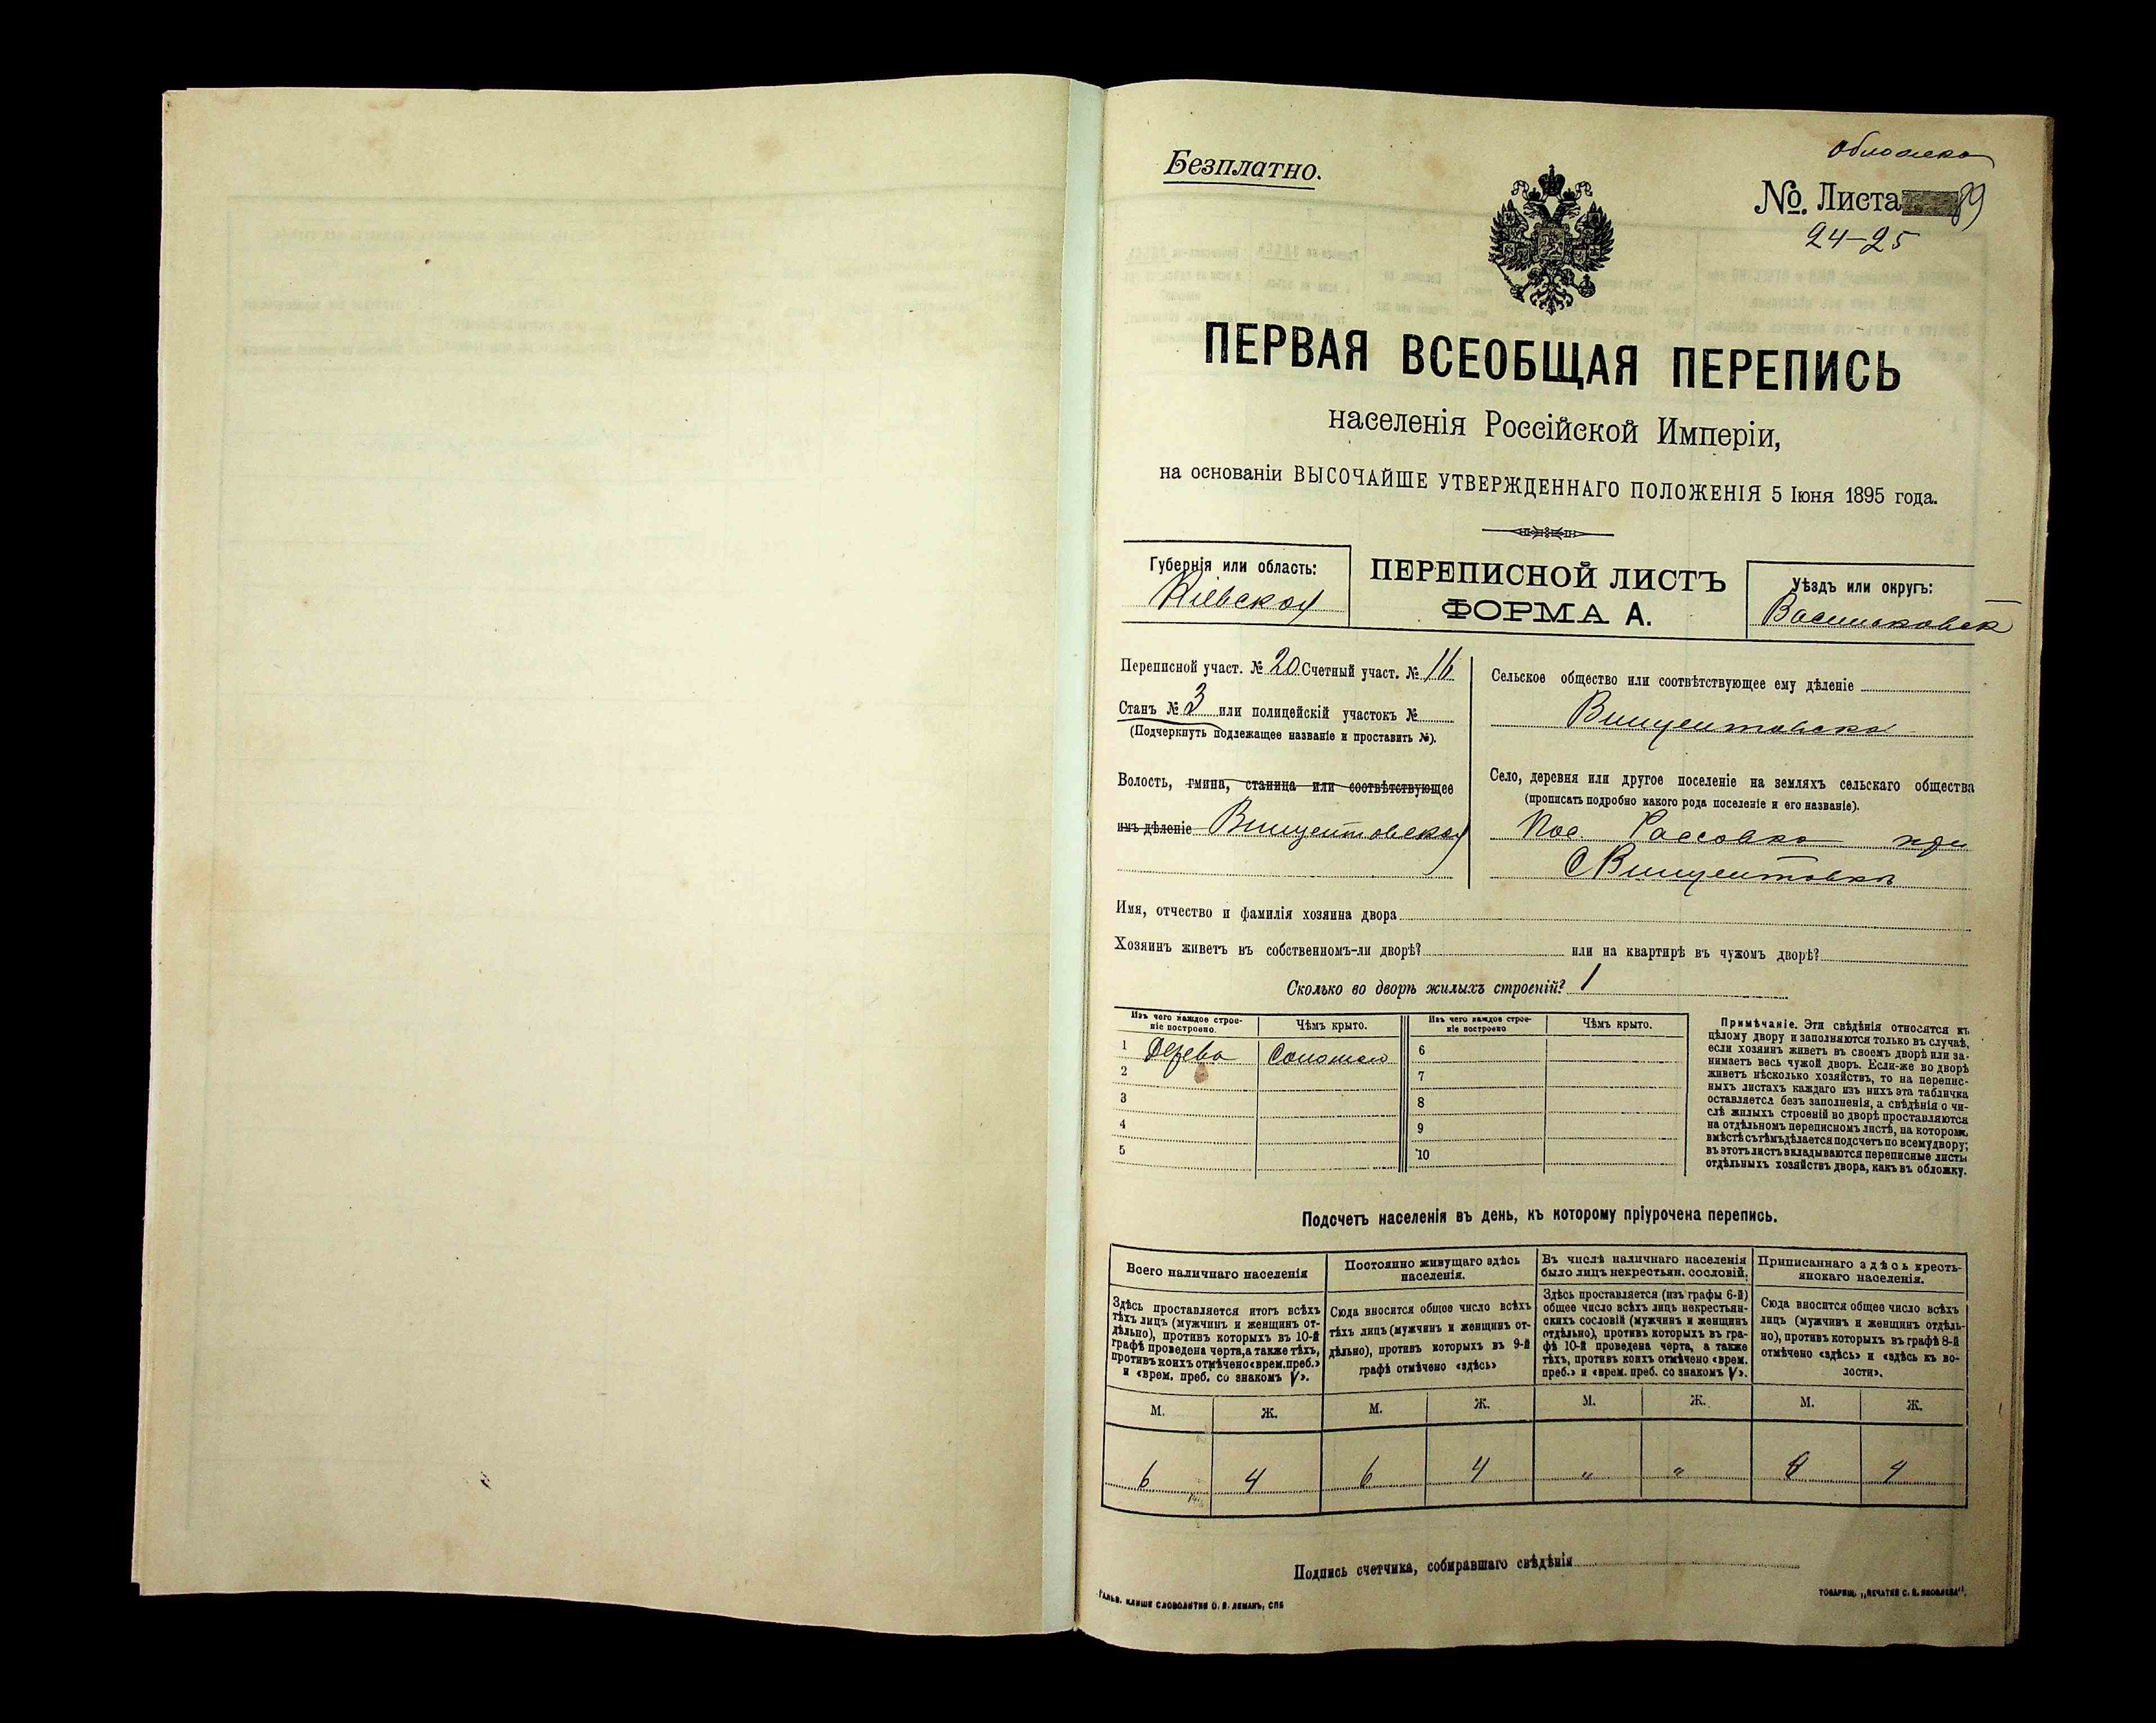 Обложка
Безплатно.
№. Листа 89
24-25
ПЕРВАЯ ВСЕОБЩАЯ ПЕРЕПИСЬ
населенія Россійской Имперіи,
на основаніи ВЫСОЧАЙШЕ УТВЕРЖДЕННАГО ПОЛОЖЕНІЯ 5 Іюня 1895 года.
Губернія или область:
Кіевская
ПЕРЕПИСНОЙ ЛИСТЪ
ФОРМА А.
Уѣздъ или округъ:
Васильковск
Переписной участ. № 20 Счетный участ. № 16
Станъ № 3 или полицейскій участокъ №
(Подчеркнуть подлежащее названіе и проставить №).
Волость, гмина, станица или соотвѣтствующее
имъ дѣленіе Винцентовская
Сельское общество или соотвѣтствующее ему дѣленіе
Винцентовско
Село, деревня или другое поселеніе на земляхъ сельскаго общества
(прописать подробно какого рода поселеніе и его названіе).
Пос при
С Винцентовкѣ
Имя, отчество и фамилія хозяина двора
Хозяинъ живетъ въ собственномъ-ли дворѣ? или на квартирѣ въ чужомъ дворѣ?
Сколько во дворѣ жилыхъ строеній? 1
Изъ чего каждое строе-
ніе построено.
Чѣмъ крыто.
Изъ чего каждое строе-
ніе построено
Чѣмъ крыто.
1 Дерева Соломою 6
2 7
3 8
4 9
5 10
Примѣчаніе. Эти свѣдѣнія относятся къ
цѣлому двору и заполняются только въ случаѣ,
если хозяинъ живетъ въ своемъ дворѣ или за-
нимаетъ весь чужой дворъ. Если-же во дворѣ
живетъ нѣсколько хозяйствъ, то на перепис-
ныхъ листахъ каждаго изъ нихъ эта табличка
оставляется безъ заполненія, а свѣдѣнія о чи-
слѣ жилыхъ строеній во дворѣ проставляются
на отдѣльномъ переписномъ листѣ, на которомъ
вмѣстѣ съ тѣмъ дѣлается подсчетъ по всему двору;
въ этотъ листъ вкладываются переписные листы
отдѣльныхъ хозяйствъ двора, какъ въ обложку.
Подсчетъ населенія въ день, къ которому пріурочена перепись.
Всего наличнаго населенія
Постоянно живущаго здѣсь
населенія.
Въ числѣ наличнаго населенія
было лицъ некрестьян. сословій.
Приписаннаго здѣсь кресть-
янскаго населенія.
Здѣсь проставляется итогъ всѣхъ
тѣхъ лицъ (мужчинъ и женщинъ от-
дѣльно), противъ которыхъ въ 10-й
графѣ проведена черта, а также тѣхъ,
противъ коихъ отмѣчено «врем. преб.»
и «врем. преб. со знакомъ V».
Сюда вносится общее число всѣхъ
тѣхъ лицъ (мужчинъ и женщинъ от-
дѣльно), противъ которыхъ въ 9-й
графѣ отмѣчено «здѣсь»
Здѣсь проставляется (изъ графы 6-й)
общее число всѣхъ лицъ некрестьян-
скихъ сословій (мужчинъ и женщинъ
отдѣльно), противъ которыхъ въ гра-
фѣ 10-й проведена черта, а также
тѣхъ, противъ коихъ отмѣчено «врем.
преб.» и «врем. преб. со знакомъ V».
Сюда вносится общее число всѣхъ
лицъ (мужчинъ и женщинъ отдѣль-
но), противъ которыхъ въ графѣ 8-й
отмѣчено «здѣсь» и «здѣсь къ во-
лости».
М. Ж. М. Ж. М. Ж. М. Ж.
6 4 6 4 " " 4
Подпись счетчика, собиравшаго свѣдѣнія
Гальв. клише словолитни О. И. Леманъ, СПБ
Товарищ. „Печатня С. П. Яковлева".